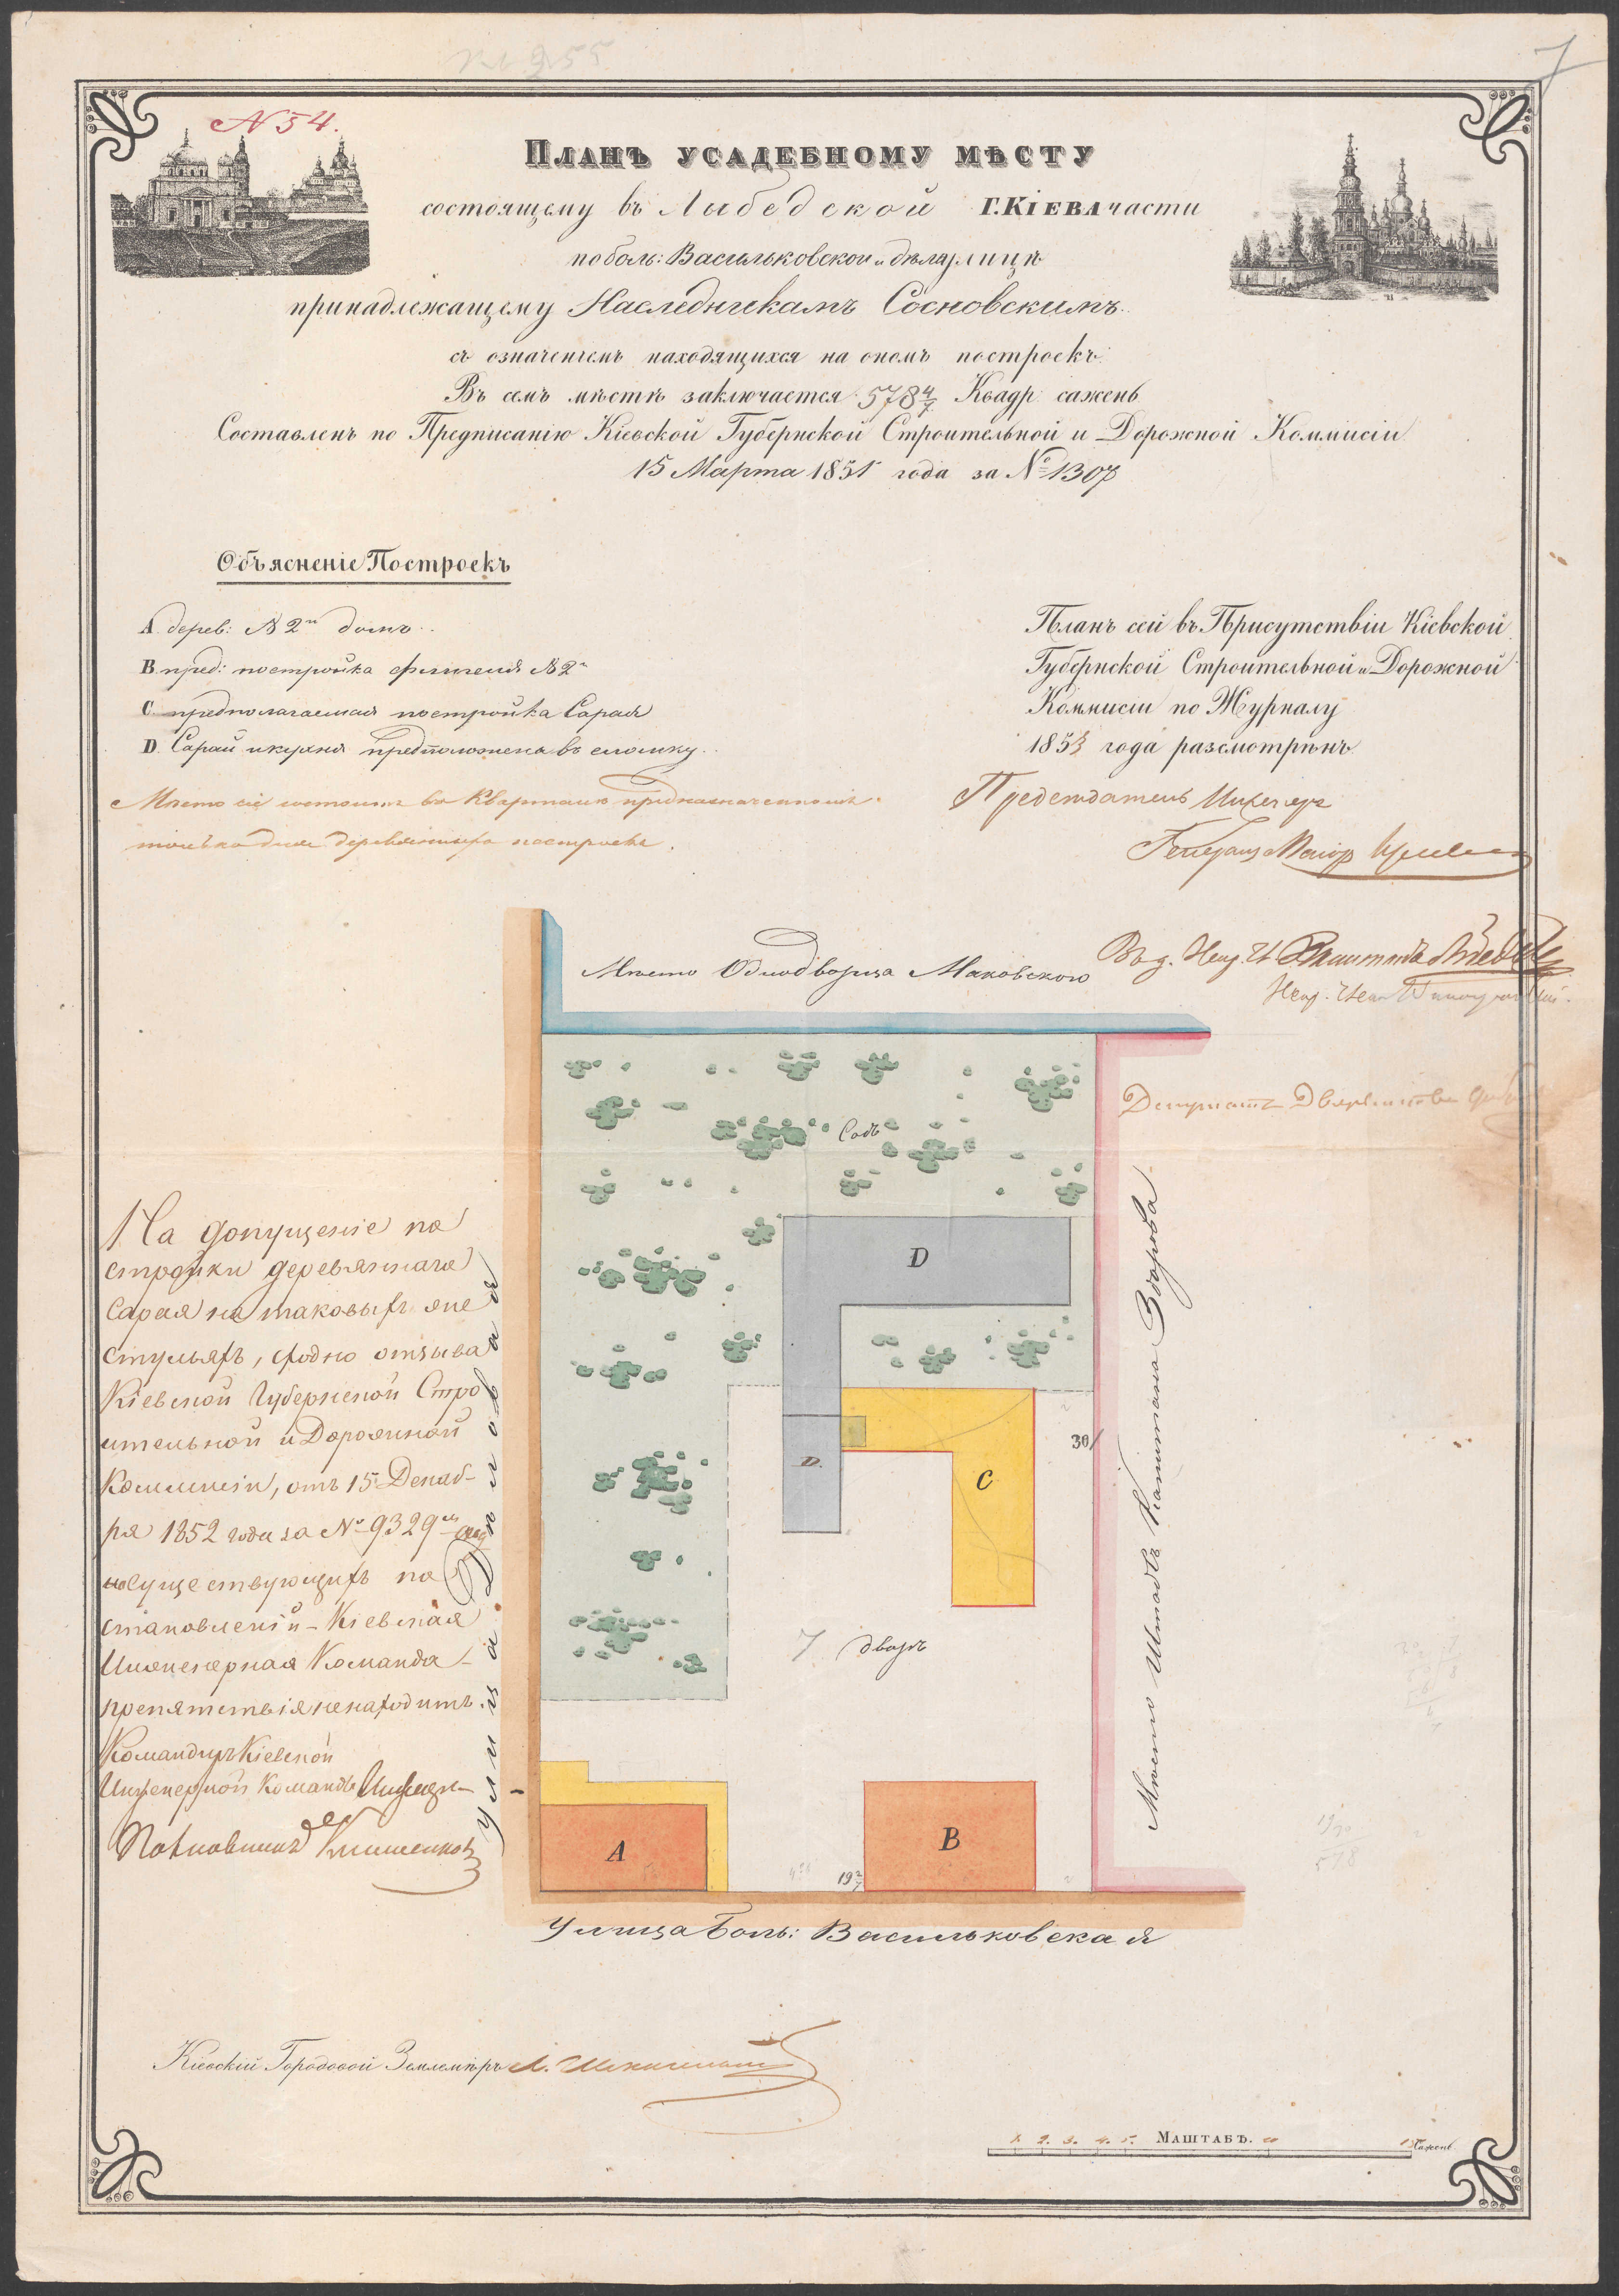 № 255
7
N 54.
Планъ усадебному мѣсту
состоящему въ Лыбедской Г. Кіева части
по боль: Васильковской и улицѣ
принадлежащему Наследникамъ Сосновскимъ
съ означеніемъ находящихся на ономъ построекъ.
Въ семъ мѣстѣ заключается 578 4/7 Квадр. сажень
Составленъ по Предписанію Кіевской Губернской Строительной и Дорожной Коммисіи
15 Марта 1851 года за № 1307
Объясненіе Построекъ
A. дерев: № 2й домъ.
B. пред: постройка флигеля № 2й
C. предполагаемая постройка Сарая
D. Сарай и кухня предположена въ сломку.
Мѣсто сіе состоитъ въ Кварталѣ предназначенномъ
только для деревянныхъ построекъ.
Планъ сей въ Присутствіи Кіевской
Губернской Строительной и Дорожной
Коммисіи по Журналу
1853 года разсмотрѣнъ
Председатель Инженеръ
Генералъ Маіоръ
Мѣсто Однодворца Маковского
Депутатъ Дворянства
Садъ
D
D.
C
30
7
дворъ
A
B
19 2/7
Мѣсто Штабъ Капитана Здорова.
Улица
Улица Боль: Васильковская
На допущеніе по
стройки деревяннаго
Сарая на таковыхъ же
стульяхъ, сходно отзыва
Кіевской Губернской Стро
ительной и Дорожной
Коммисіи, отъ 15 Декаб-
ря 1852 года за № 9329м
существующихъ по
становленій – Кіевская
Инженерная Команда
препятствія не находитъ.
Командиръ Кіевской
Инженерной Команды Инженеръ
Полковникъ
Кіевскій Городовой Землемѣръ
1. 2. 3. 4. 5. Маштабъ. 10 15 Сажень.